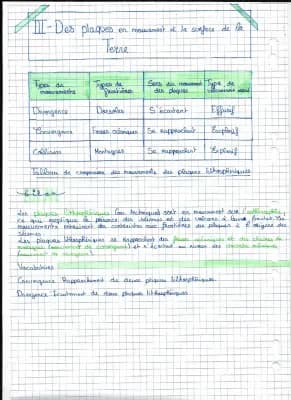 III - Des plaques en mouvement à la surface de la
Terre
Types de mouvements | Types de frontières | Sens du mouvement des plaques | Type de volcanisme
Divergence | Dorsales | S'écartent | Effusif
Convergence | Fosses océaniques | Se rapprochent | Explosif
Collision | Montagnes | Se rapprochent | Explosif
Tableau de des mouvements des plaques lithosphériques
Bilan
Les plaques lithosphériques (ou tectoniques) sont en mouvement sur l'asthénosphère,
ce qui explique la présence des séismes et des volcans à leurs frontières. Ces
mouvements des aux frontières des plaques à l'origine des
séismes.
Les plaques lithosphériques se rapprochent des fosses océaniques et des chaînes de
montagnes (mouvement de convergence) et s'écartent au niveau des dorsales océaniques
(mouvement de divergence).
Vocabulaire
Convergence Rapprochement de deux plaques lithosphériques.
Divergence de deux plaques lithosphériques.